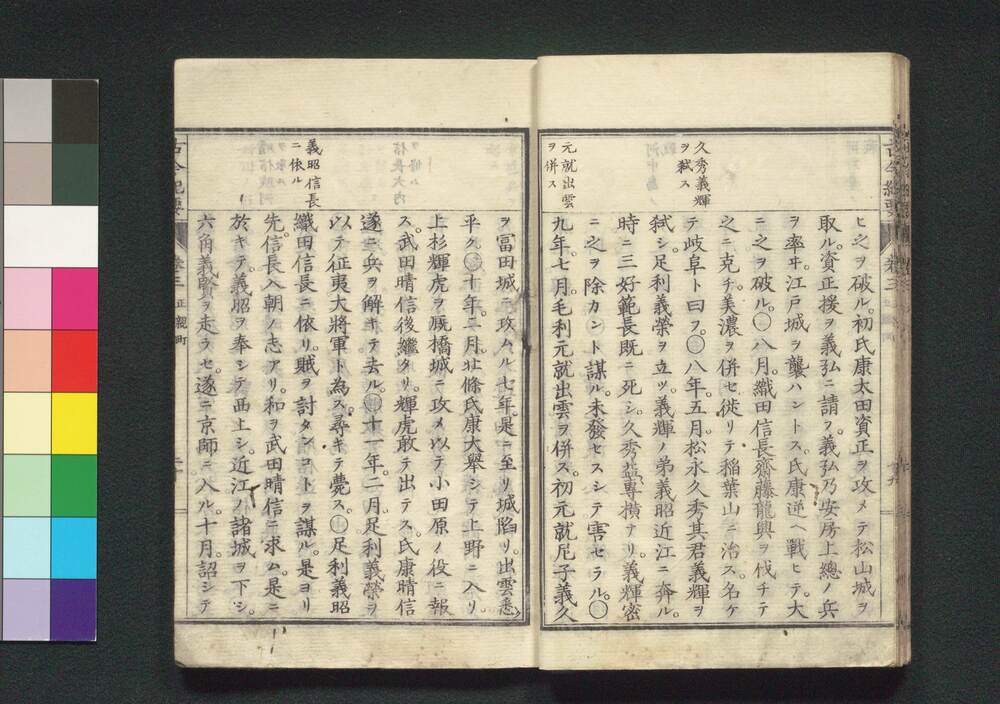 久秀義輝
ヲ弑ス
元就出雲
ヲ併ス
ヒ之ヲ破ル。初氏康太田資正ヲ攻メテ松山城ヲ
取ル。資正援ヲ義弘ニ請フ。義弘乃安房上總ノ兵
ヲ率ヰ。江戸城ヲ襲ハントス。氏康逆ヘ戰ヒテ。大
ニ之ヲ破ル。〇八月。織田信長齋藤龍興ヲ伐チテ
之ニ克チ。美濃ヲ併セ。徙リテ稲葉山ニ治ス。名ケ
テ岐阜ト曰フ。〇八年。五月。松永久秀其君義輝ヲ
弑シ。足利義榮ヲ立ツ。義輝ノ弟義昭近江ニ奔ル。
時ニ三好範長既ニ死シ。久秀益專横ナリ。義輝密
ニ之ヲ除カント謀ル。未發セスシテ害セラル。〇
九年。七月。毛利元就出雲ヲ併ス。初元就尼子義久
古今紀要
卷三
正親町
義昭信長
ニ依ル
ヲ冨田城ニ攻ムル七年。是ニ至リ城陷リ。出雲悉ク
平ク。〇十年。二月。北條氏康大舉シテ上野ニ入リ。
上杉輝虎ヲ厩橋城ニ攻メ。以テ小田原ノ役ニ報
ス。武田晴信後繼タリ。輝虎敢テ出テス。氏康晴信
遂ニ兵ヲ解キテ去ル。〇十一年。二月。足利義榮ヲ
以テ征夷大將軍ト為ス。尋キテ薨ス。〇足利義昭
織田信長ニ依リ。賊ヲ討タンコトヲ謀ル。是ヨリ
先。信長入朝ノ志アリ。和ヲ武田晴信ニ求ム。是ニ
於キテ。義昭ヲ奉シテ西上シ。近江ノ諸城ヲ下シ。
六角義賢ヲ走ラセ。遂ニ京師ニ入ル。十月。詔シテ